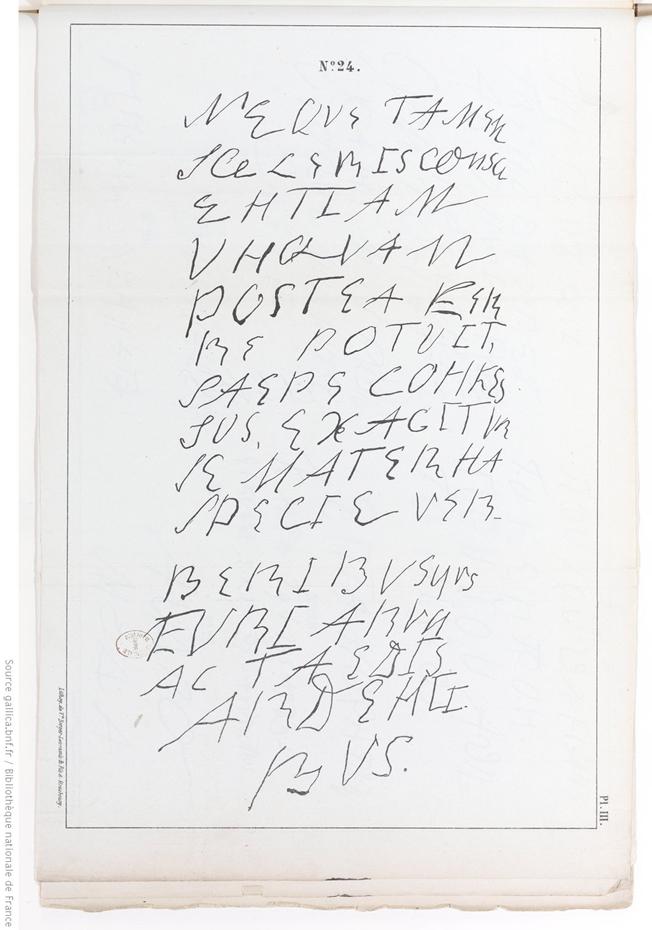 N° 24.
NEQVE TAMEN
SCELERIS CONSCI
ENTIAM
VNQVAM
POSTEA FER
RE POTVIT,
SAEPE CONFES
SUS, EXAGITVR
SE MATERNA
SPECIE VER-
BERIBVSQVE
FVRIARVM
AC TAEDIS
ARDENTI
BVS.
Lithog. de Ve Berger-Levrault & Fils à Strasbourg.
Pl. III.
Source gallica.bnf.fr / Bibliothèque nationale de France